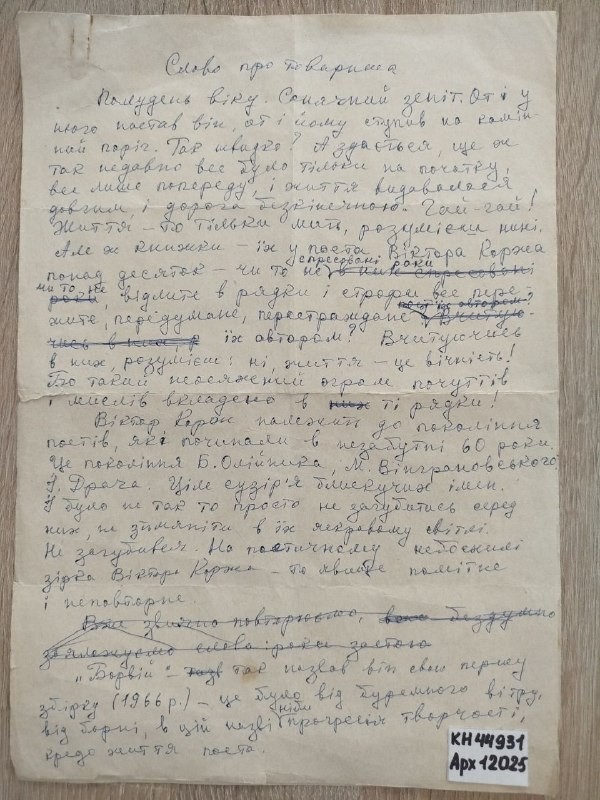 Слово про товариша
Полудень віку. Сонячний зеніт. От і у
нього настав він, от і йому ступив на камін-
ний поріг. Так швидко? А здається, ще ж
так недавно все було тільки на початку,
все лише попереду, і життя видавалося
довгим, і дорога безкінечною. Гай-гай!
Життя – то тільки мить, розумієш нині.
Але ж книжки – їх у поета Віктора Коржа
спресовані роки
понад десяток – чи то не в них спресовані
чи то не
роки, відлите в рядки і строфи все пере-
поет їх автором?
жите, передумане, перестраждане Вчитую-
чись в них їх автором? Вчитуючись
в них, розумієш: ні, життя – це вічність!
Бо такий неосяжний огром почуттів
і мислів вкладено в них ті рядки!
Віктор Корж належить до покоління
поетів, які починали в незабутні 60 роки.
Це покоління Б. Олійника, М. Вінграновського,
І. Драча. Ціле сузір'я блискучих імен.
І було не так то просто не загубитись серед
них, не зітмяніти в їх яскравому світлі.
Не загубився. На поетичному небосхилі
зірка Віктора Коржа – то явище помітне
і неповторне.
Вже звично повторюємо, бездумно
слова: роки застою
„Борвій" – так назвав він свою першу
збірку (1966 р.) – це було від буремного вітру,
ніби
від борні, в цій назві прогресія творчості,
кредо життя поета.
КН 44931
Арх 12025